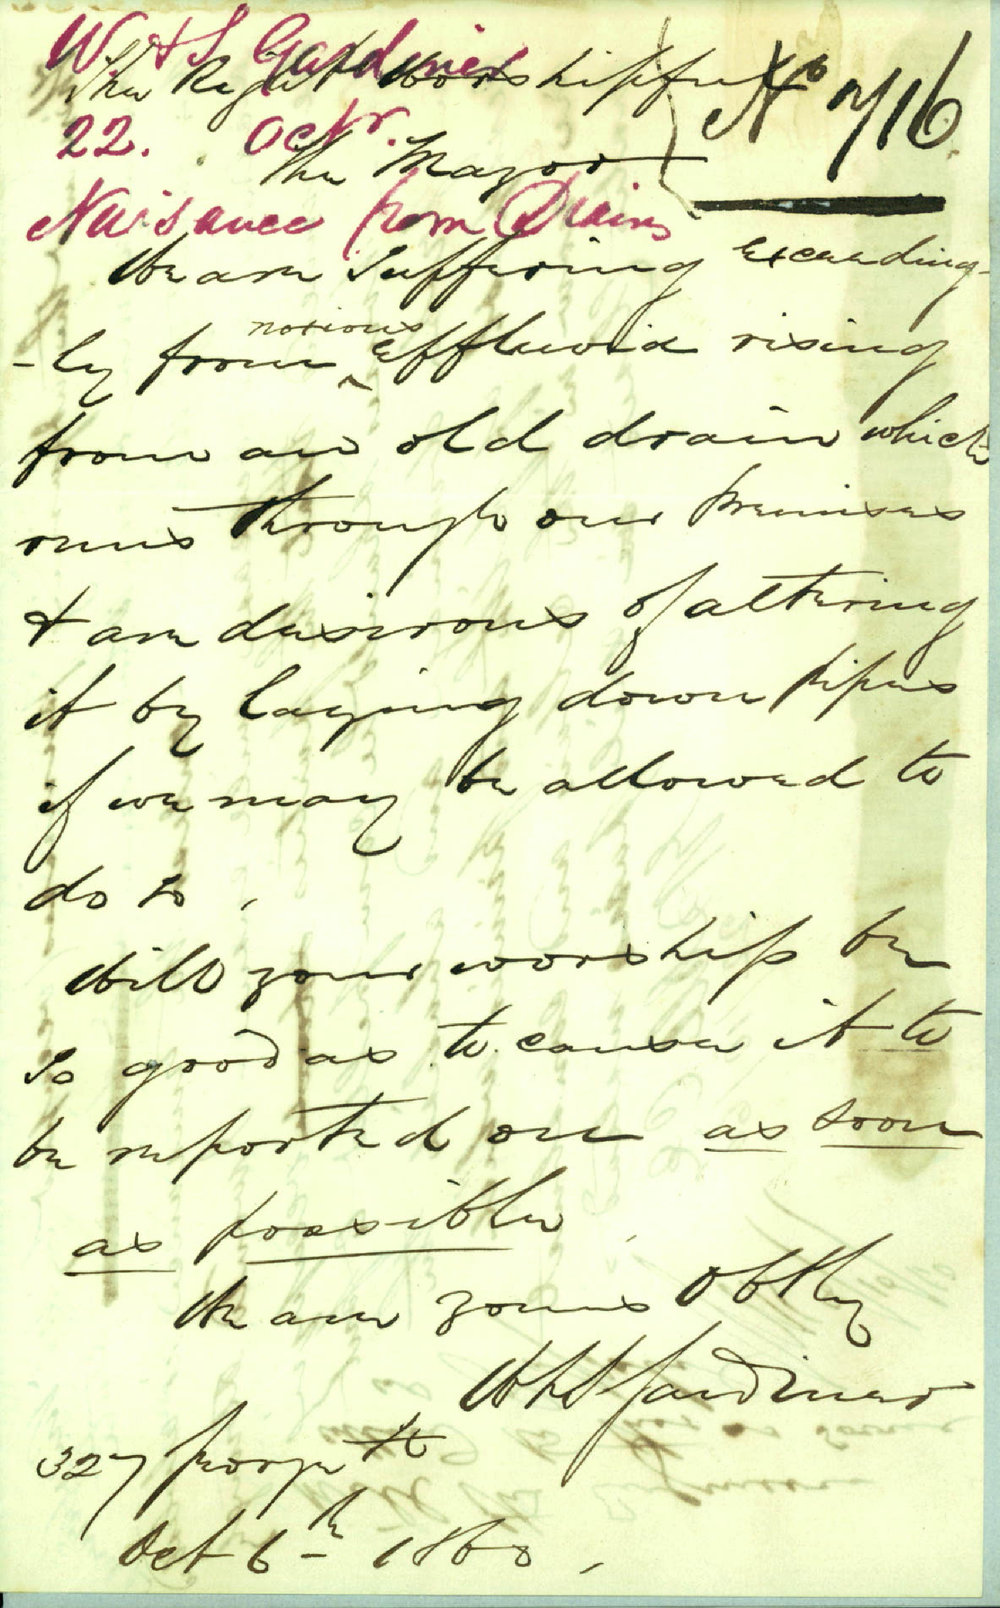 W & S Gardiner
The Right Worshipful
No 716.
22. Octr.
The Mayor
Nuisance from Drains
We are suffering exceeding-
-ly from noxious effluvia rising
from an old drain which
runs through our premises
& are desirous of altering
it by laying down pipes
if we may be allowed to
do so,
Will your worship be
so good as to cause it to
be reported on as soon
as possible.
We are yours Obtly
W & S Gardiner
327 George St
Oct 6th 1860,